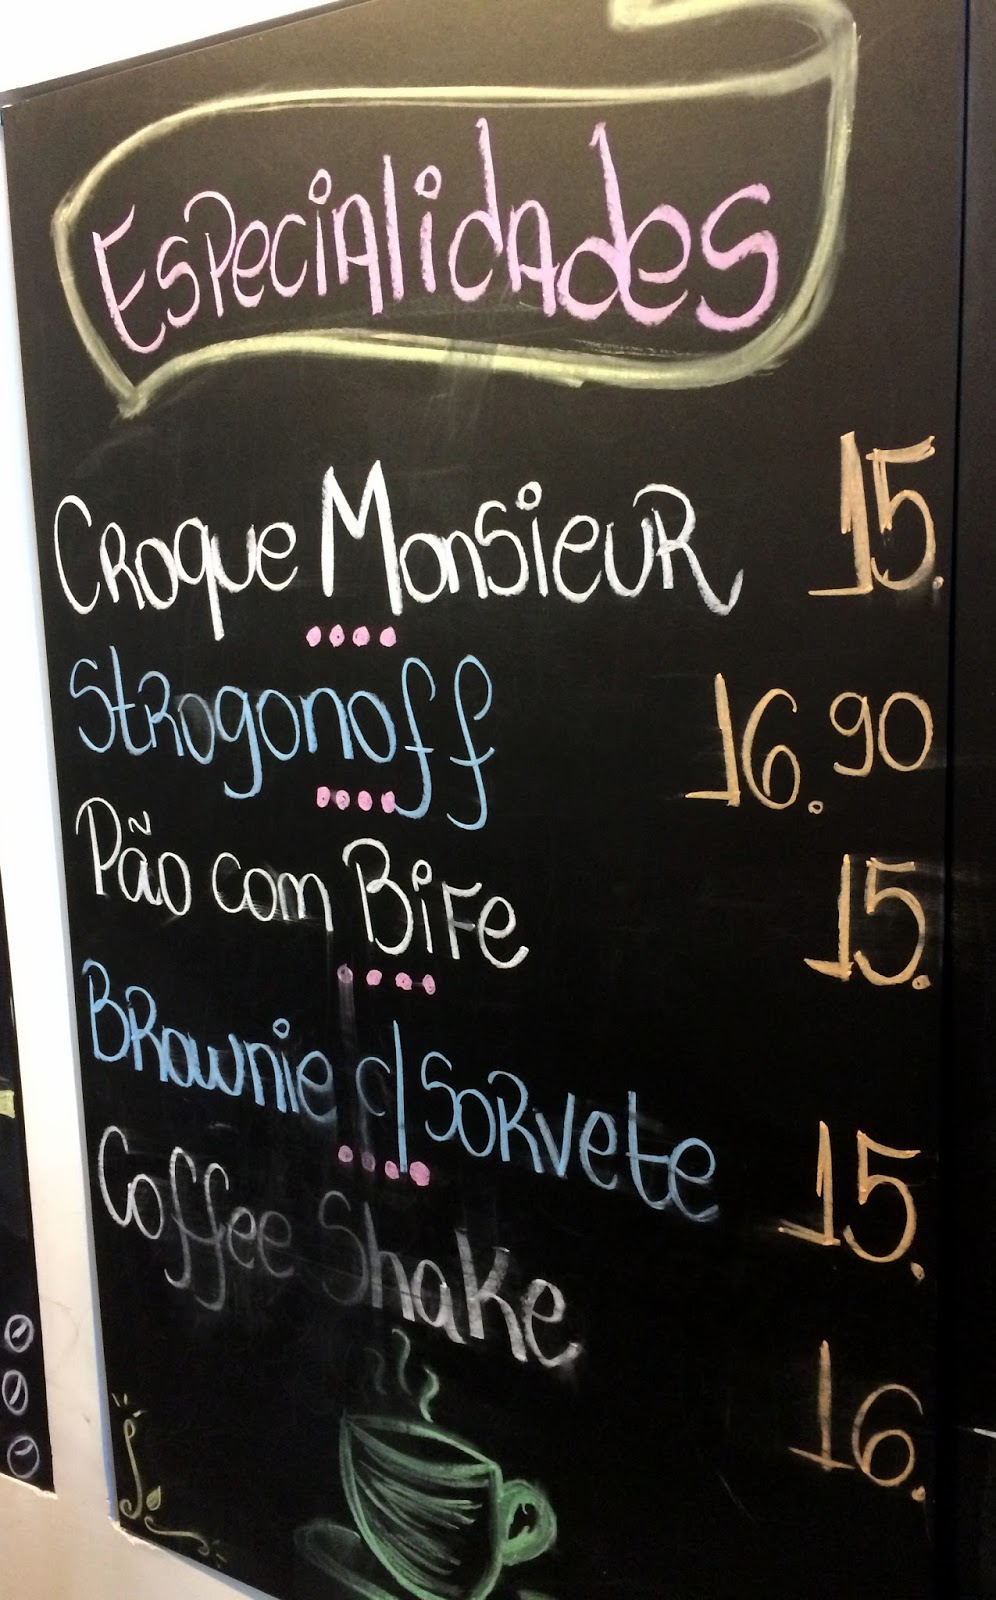 Especialidades
Croque Monsieur 15.
Strogonoff 16.90
Pão com Bife 15.
Brownie c/ Sorvete 15.
Coffee Shake 16.